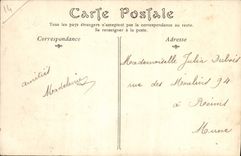 14
Carte Postale
Tous les pays étrangers n'acceptent pas la correspondance au recto.
Se renseigner à la poste.
Correspondance
Adresse
amitiés
Madeleine
Mademoiselle Julia Dubois
rue des Moulins 94
à Reims
Marne